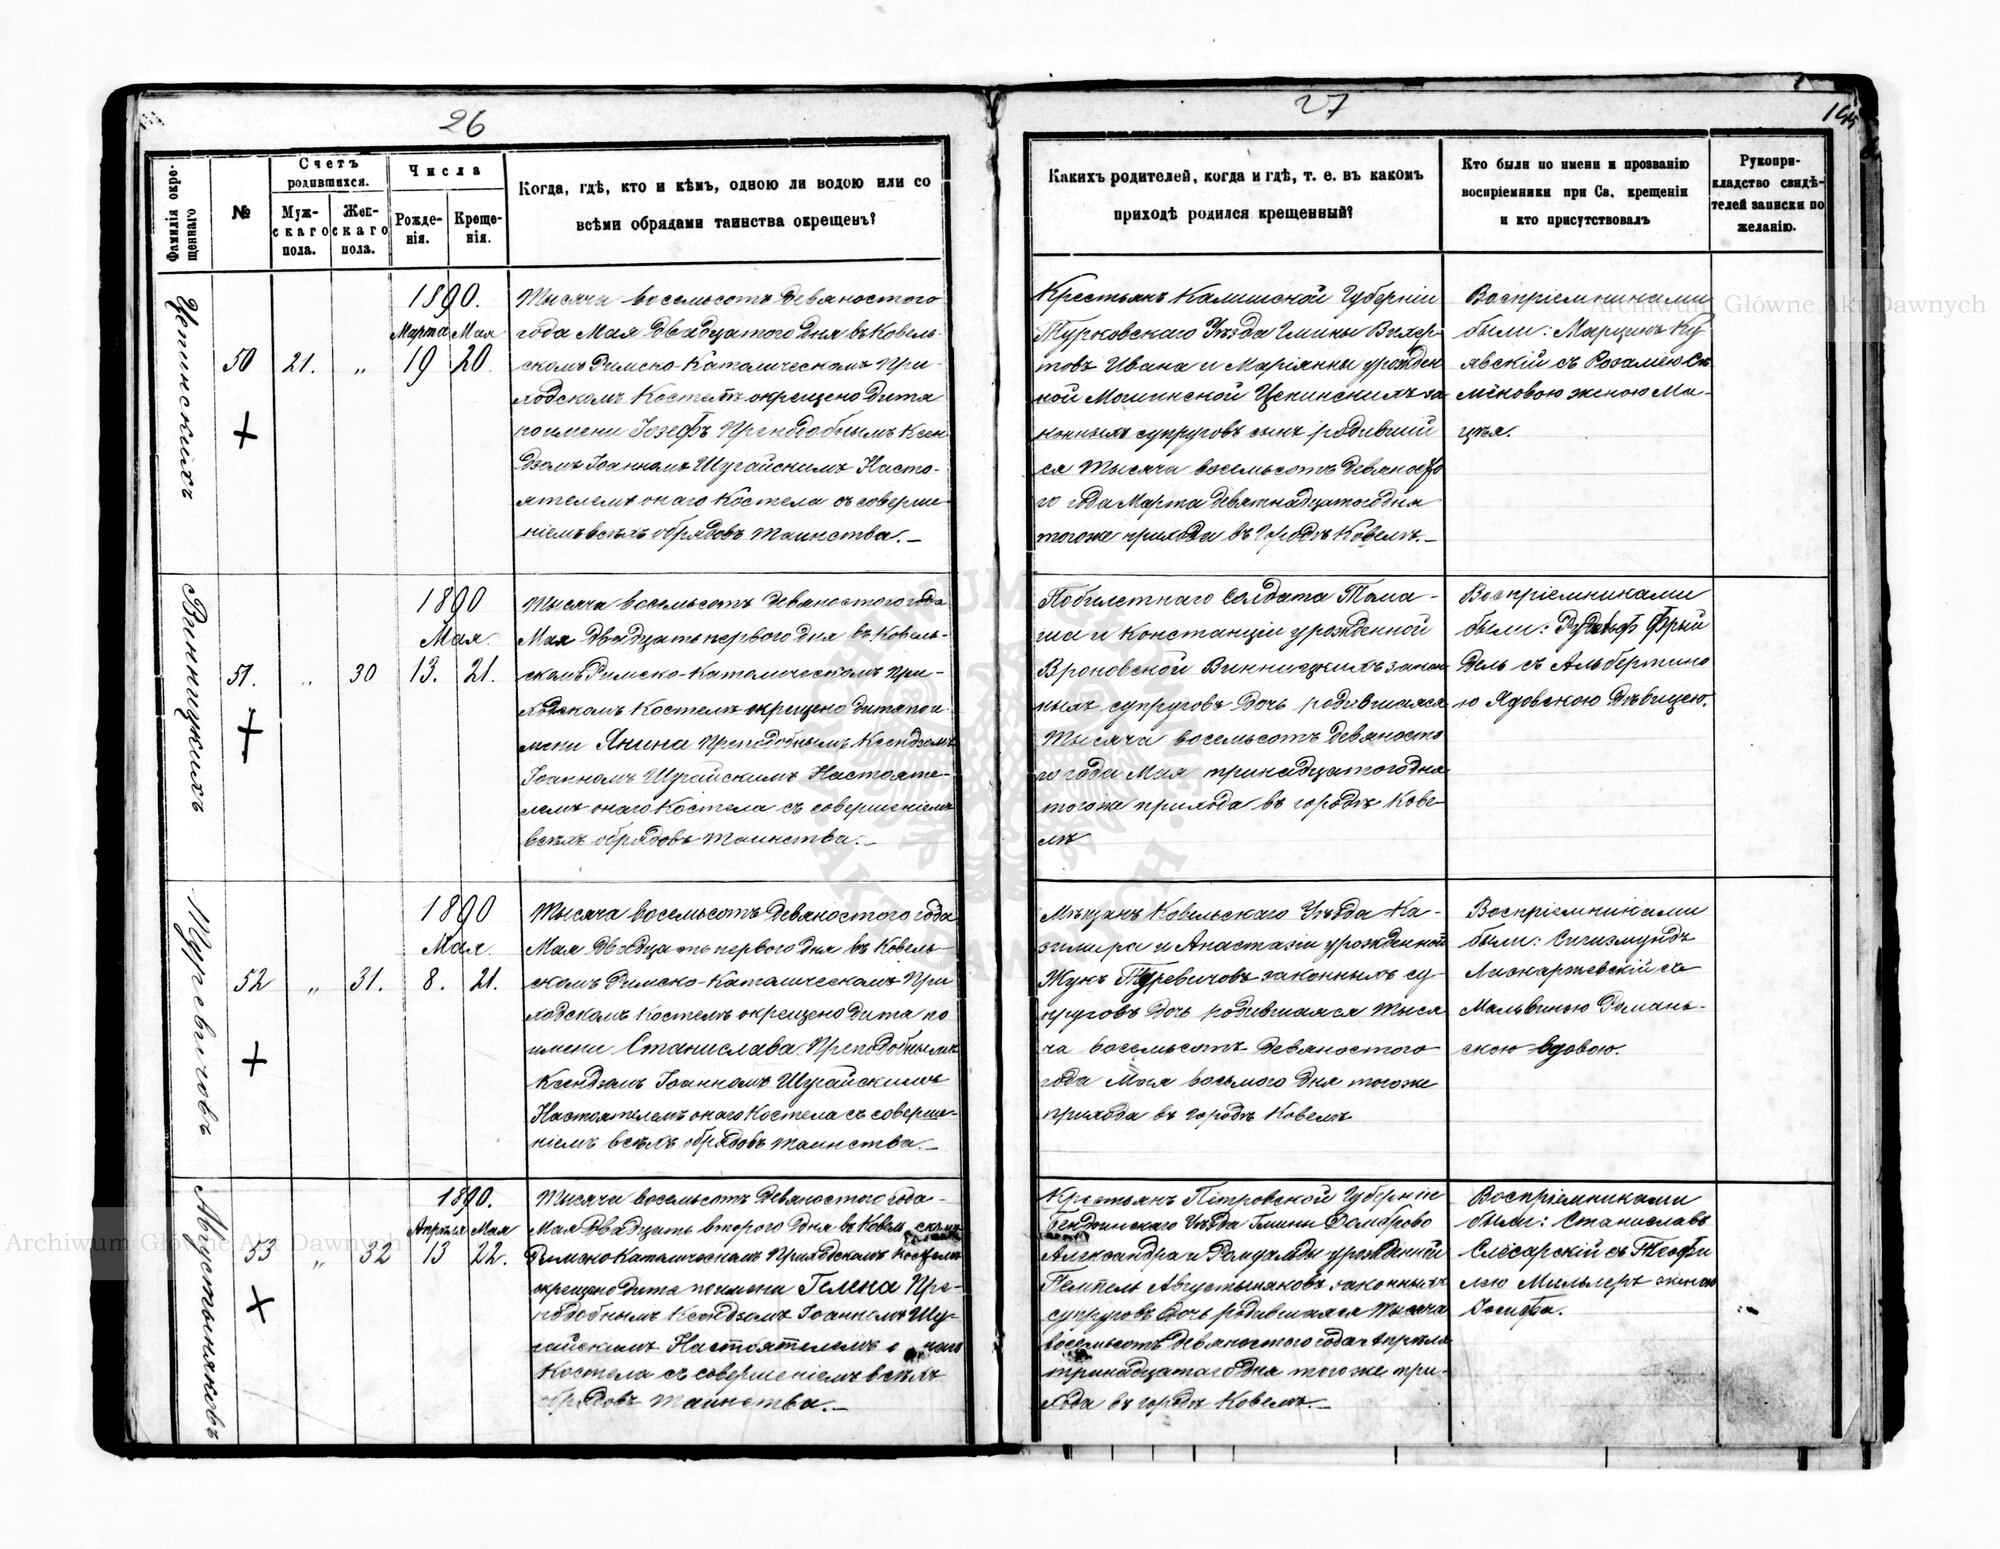 26
27
Фамилія окре-
щеннаго
№
Счетъ
родившихся.
Муж-
скаго
пола.
Жен-
скаго
пола.
Числа
Рожде-
нія.
Креще-
нія.
Когда, гдѣ, кто и кѣмъ, одною ли водою или со
всѣми обрядами таинства окрещенъ?
Какихъ родителей, когда и гдѣ, т. е. въ какомъ
приходѣ родился крещенный?
Кто были по имени и прозванію
воспріемники при Св. крещеніи
и кто присутствовалъ
Рукопри-
кладство свидѣ-
телей записки по
желанію.
Цепинскихъ
50
21.
„
1890.
Марта Мая
19 20.
Тысяча восемьсотъ девяностого
года Мая двадцатого дня въ Ковель-
скомъ Римско-Католическомъ При-
ходскомъ Костелѣ окрещено дитя
по имени Іозефъ Преподобнымъ Ксен-
дзомъ Іоанномъ Шугайскимъ Насто-
ятелемъ онаго Костела съ соверше-
ніемъ всѣхъ обрядовъ таинства.-
Крестьянъ Калишской Губерніи
Турковскаго Уѣзда Гмины
Ивана и Маріянны урожден
ной Мошинской Цепинскихъ за
конныхъ супруговъ сынъ родивший
ся тысяча восемьсотъ девяносто
го года Марта девятнадцатого дня
тогоже прихода въ городѣ Ковелѣ.-
Воспріемниками
были: Марцинъ Ку
явскій съ Розалею
женою Ма-
цѣя.
Винницкихъ
51.
„
30
1890
Мая
13. 21.
Тысяча восемьсотъ девяностого года
Мая двадцать первого дня въ Ковель-
скомъ Римско-Католическомъ При-
ходскомъ Костелѣ окрещено дитя по и-
мени Янина Преподобнымъ Ксендзомъ
Іоанномъ Шугайскимъ Настояте-
лемъ онаго Костела съ совершеніемъ
всѣхъ обрядовъ таинства.-
Побилетнаго Солдата Тома-
ша и Констанціи урожденной
Вроновской Винницкихъ закон
ныхъ супруговъ дочь родившаяся
тысяча восемьсотъ девяносто
го года Мая тринадцатого дня
тогоже прихода въ городѣ Кове-
лѣ
Воспріемниками
были: Рудольф Фрый
дель съ Альбертино
ю Ядовскою дѣвицею.
Туревичовъ
52
„
31.
1890
Мая
8. 21.
Тысяча восемьсотъ девяностого года
Мая двадцать первого дня въ Ковель-
скомъ Римско-Католическомъ При
ходскомъ Костелѣ окрещено дитя по
имени Станислава Преподобнымъ
Ксендзомъ Іоанномъ Шугайскимъ
Настоятелемъ онаго Костела съ соверше-
ніемъ всѣхъ обрядовъ таинства.-
Мѣщанъ Ковельскаго Уѣзда Ка-
зимира и Анастазіи урожденной
Жукъ Туревичовъ законныхъ су-
пруговъ дочь родившаяся тыся
ча восемьсотъ девяностого
года Мая восьмого дня тогоже
прихода въ городѣ Ковелѣ
Воспріемниками
были: Сигизмундъ
съ
Мальвиною Романь-
скою вдовою.
Августыняковъ
53
„
32
1890.
Апрѣля Мая
13 22.
Тысяча восемьсотъ девяностого года-
Мая двадцать второго дня въ Ковельскомъ
Римско Католическомъ Приходскомъ Костелѣ
окрещено дитя по имени Гелена Пре-
подобнымъ Ксендзомъ Іоанномъ Шу-
гайскимъ Настоятелемъ онаго
Костела съ совершеніемъ всѣхъ
обрядовъ таинства.-
Крестьянъ Петровской Губерніи
Бендинскаго Уѣзда Гмины Домброво
Александра и Ромуальды урожденной
Темпель Августыняковъ законныхъ
супруговъ дочь родившаяся тысяча
восемьсотъ девяностого года Апрѣля
тринадцатаго дня тогоже при-
хода въ городѣ Ковелѣ.-
Воспріемниками
были: Станиславъ
Слесарскій съ Теофи
лею Мильлеръ женою
Іосифа.
Archiwum Główne Akt Dawnych
Archiwum Główne Akt Dawnych